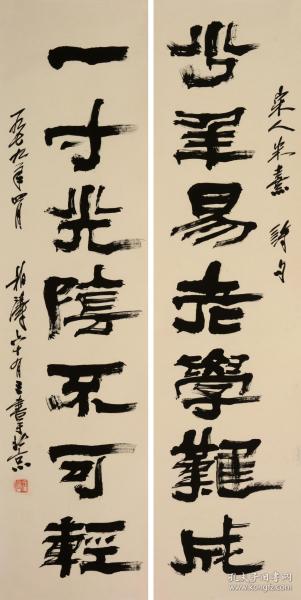 宋人朱熹 詩句
少年易老學難成
一寸光陰不可輕
一九七九年四月 六十有三書于北京
孔夫子旧书网